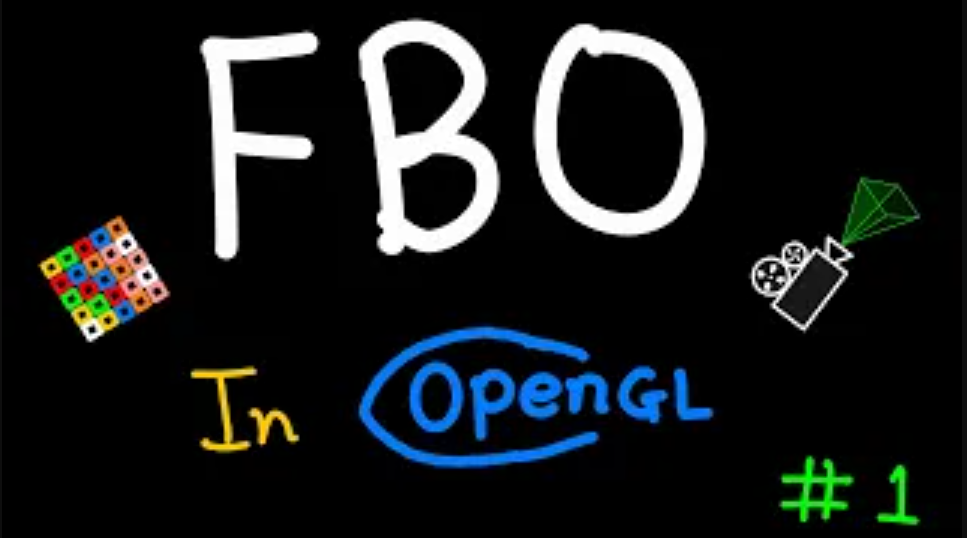 FBO
In OpenGL
#1